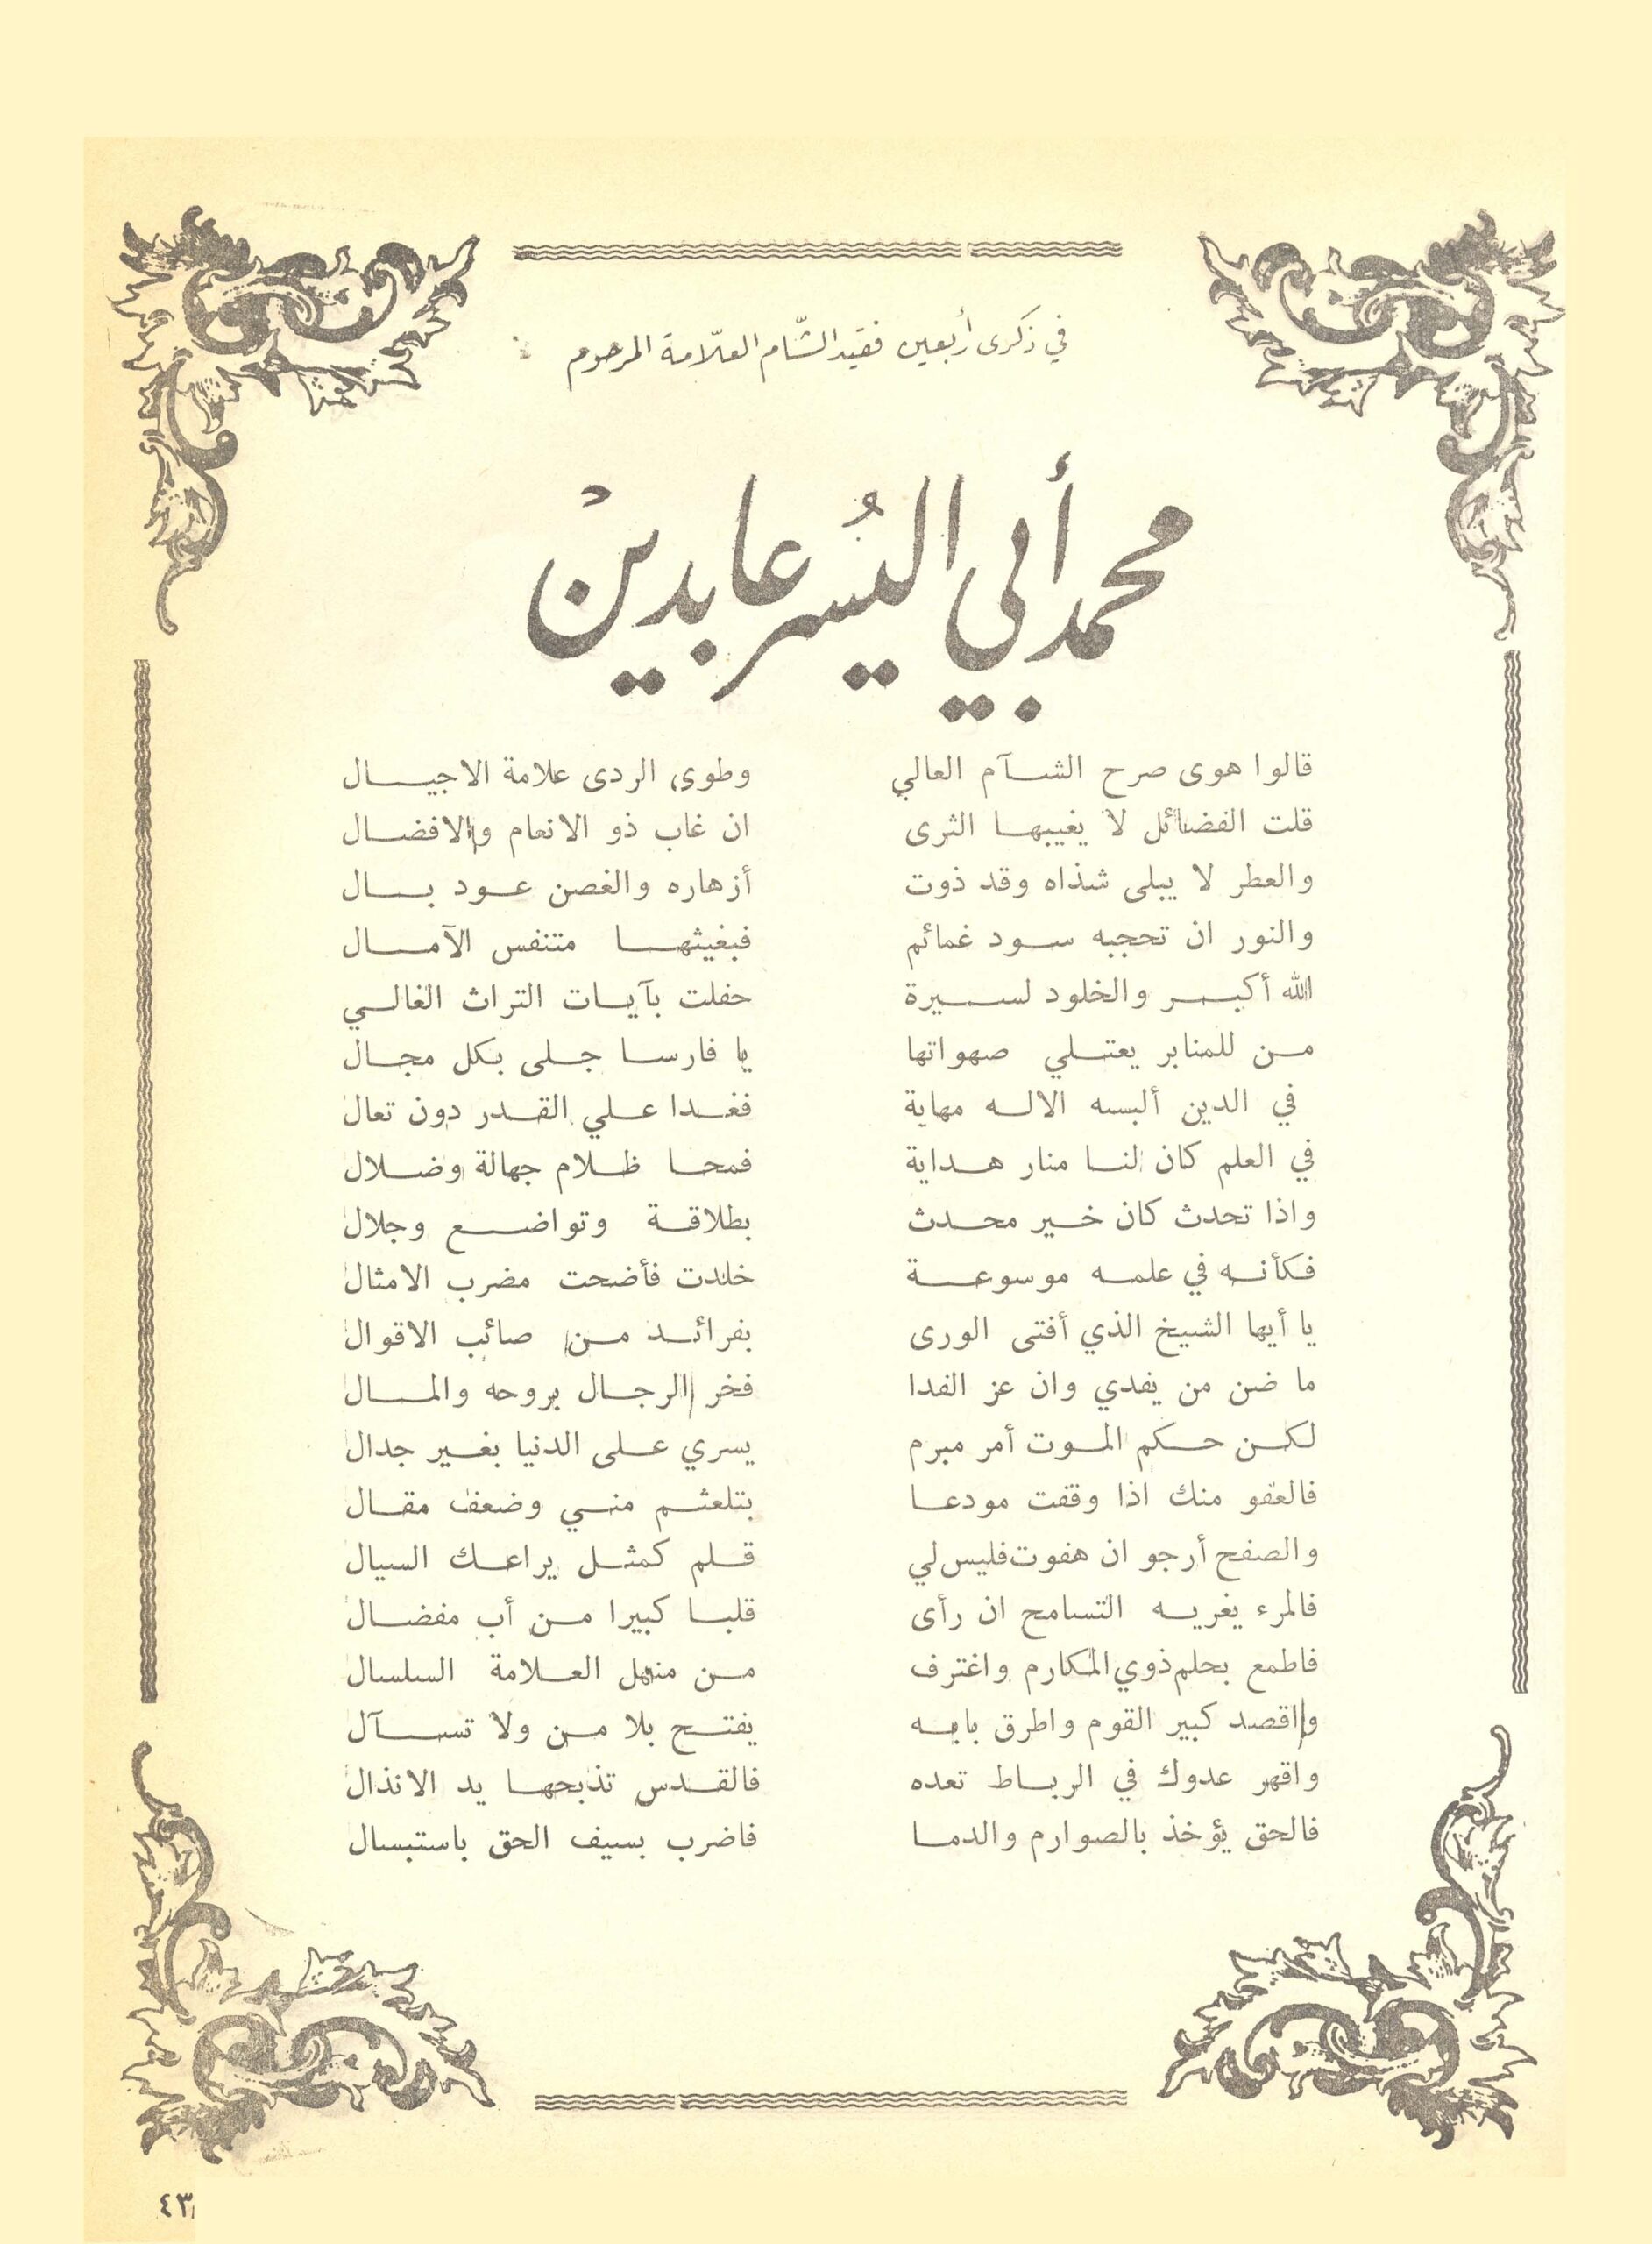 في ذكرى أربعين فقيد الشّام العلّامة المرحوم :
محمد أبي اليُسر عابدينْ
قالوا هوى صرح الشـآم العالي وطوى الردى علامة الاجيـال
قلت الفضائل لا يغيبها الثرى ان غاب ذو الانعام والافضـال
والعطر لا يبلى شذاه وقد ذوت أزهاره والغصن عـود بـال
والنور ان تحجبه سـود غمائم فبغيثهـا متنفس الآمـال
الله أكبـر والخلود لسـيرة حفلت بآيـات التراث الغالـي
مـن للمنابر يعتـلي صهواتها يا فارسـا جـلى بكل مجـال
في الدين ألبسه الالـه مهابة فغـدا عـلي القـدر دون تعال
في العلم كان لنـا منار هـداية فمحـا ظـلام جهالة وضـلال
واذا تحدث كان خـير محـدث بطلاقـة وتواضـع وجلال
فكأنـه في علمـه موسوعـة خلدت فأضحت مضرب الامثال
يا أيها الشيخ الذي أفتى الورى بفرائـد مـن صائب الاقوال
ما ضن من يفدي وان عز الفدا فخر الرجـال بروحه والمـال
لكـن حـكم المـوت أمر مبرم يسري عـلى الدنيا بغـير جدال
فالعفو منك اذا وقفت مودعـا بتلعثـم منـي وضعف مقـال
والصفح أرجو ان هفوت فليس لي قـلم كمثـل يراعـك السيال
فالمرء يغريـه التسامح ان رأى قلبـا كبيرا مـن أب مفضـال
فاطمع بحلم ذوي المكارم واغترف مـن منهل العـلامة السلسال
واقصد كبير القوم واطرق بابـه يفتـح بلا مـن ولا تسـآل
واقهر عدوك في الربـاط تعده فالقـدس تذبحهـا يد الانذال
فالحق يؤخذ بالصوارم والدمـا فاضرب بسيف الحق باستبسال
٤٣